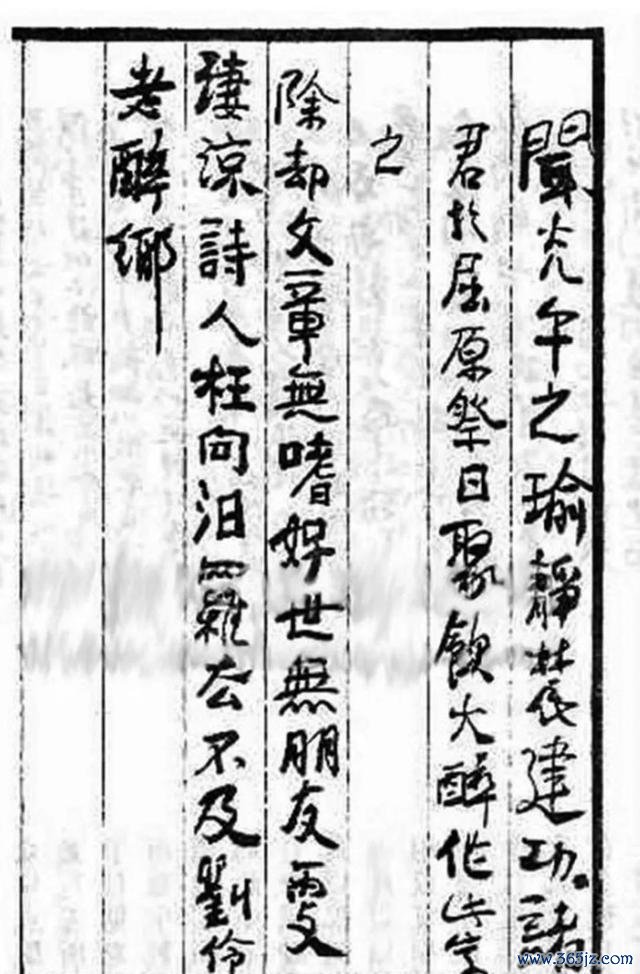 聞光午之瑜靜農建功諸
君於屈原祭日聚飲大醉作此寄
之
除却文章無嗜好世無朋友更
淒涼詩人枉向汨羅去不及劉伶
老醉鄉
www.365jz.com